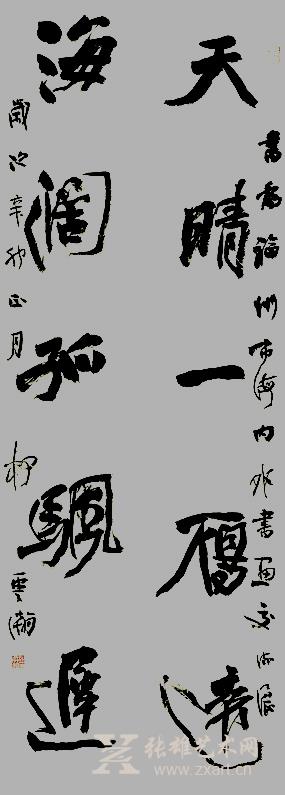 書為福州市海内外書画交流展
天晴一雁遠
海闊孤颿遲
歲次辛卯正月 柳雲瀚
张雄艺术网
www.zxart.cn